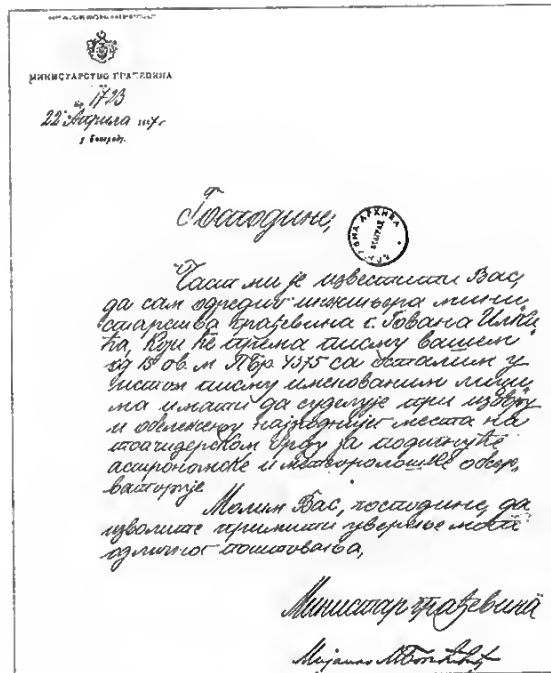 МИНИСТАРСТВО ГРАЂЕВИНА
Бр. 1723
22 Априла 1887 г
у Београду.
Господине,
ДРЖАВНА АРХИВА
БЕОГРАД
Част ми је известити Вас,
да сам одредио инжињера мини
старства грађевина г. Јована Илки
ћа, који ће према писму вашем
од 15 ов. м ПБр 4375 са осталим у
истом писму именованим лици
ма имати да суделује при избору
и обележењу најзгоднијег места на
топчидерском брду за подигнуће
астрономске и метеоролошке обсер
ваторије
Молим Вас, господине, да
изволите примити уверење мога
одличног поштовања,
Министар грађевина